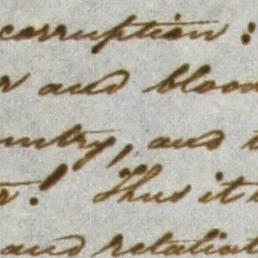 corruption:
and blood
and
! Thus it
and retaliat